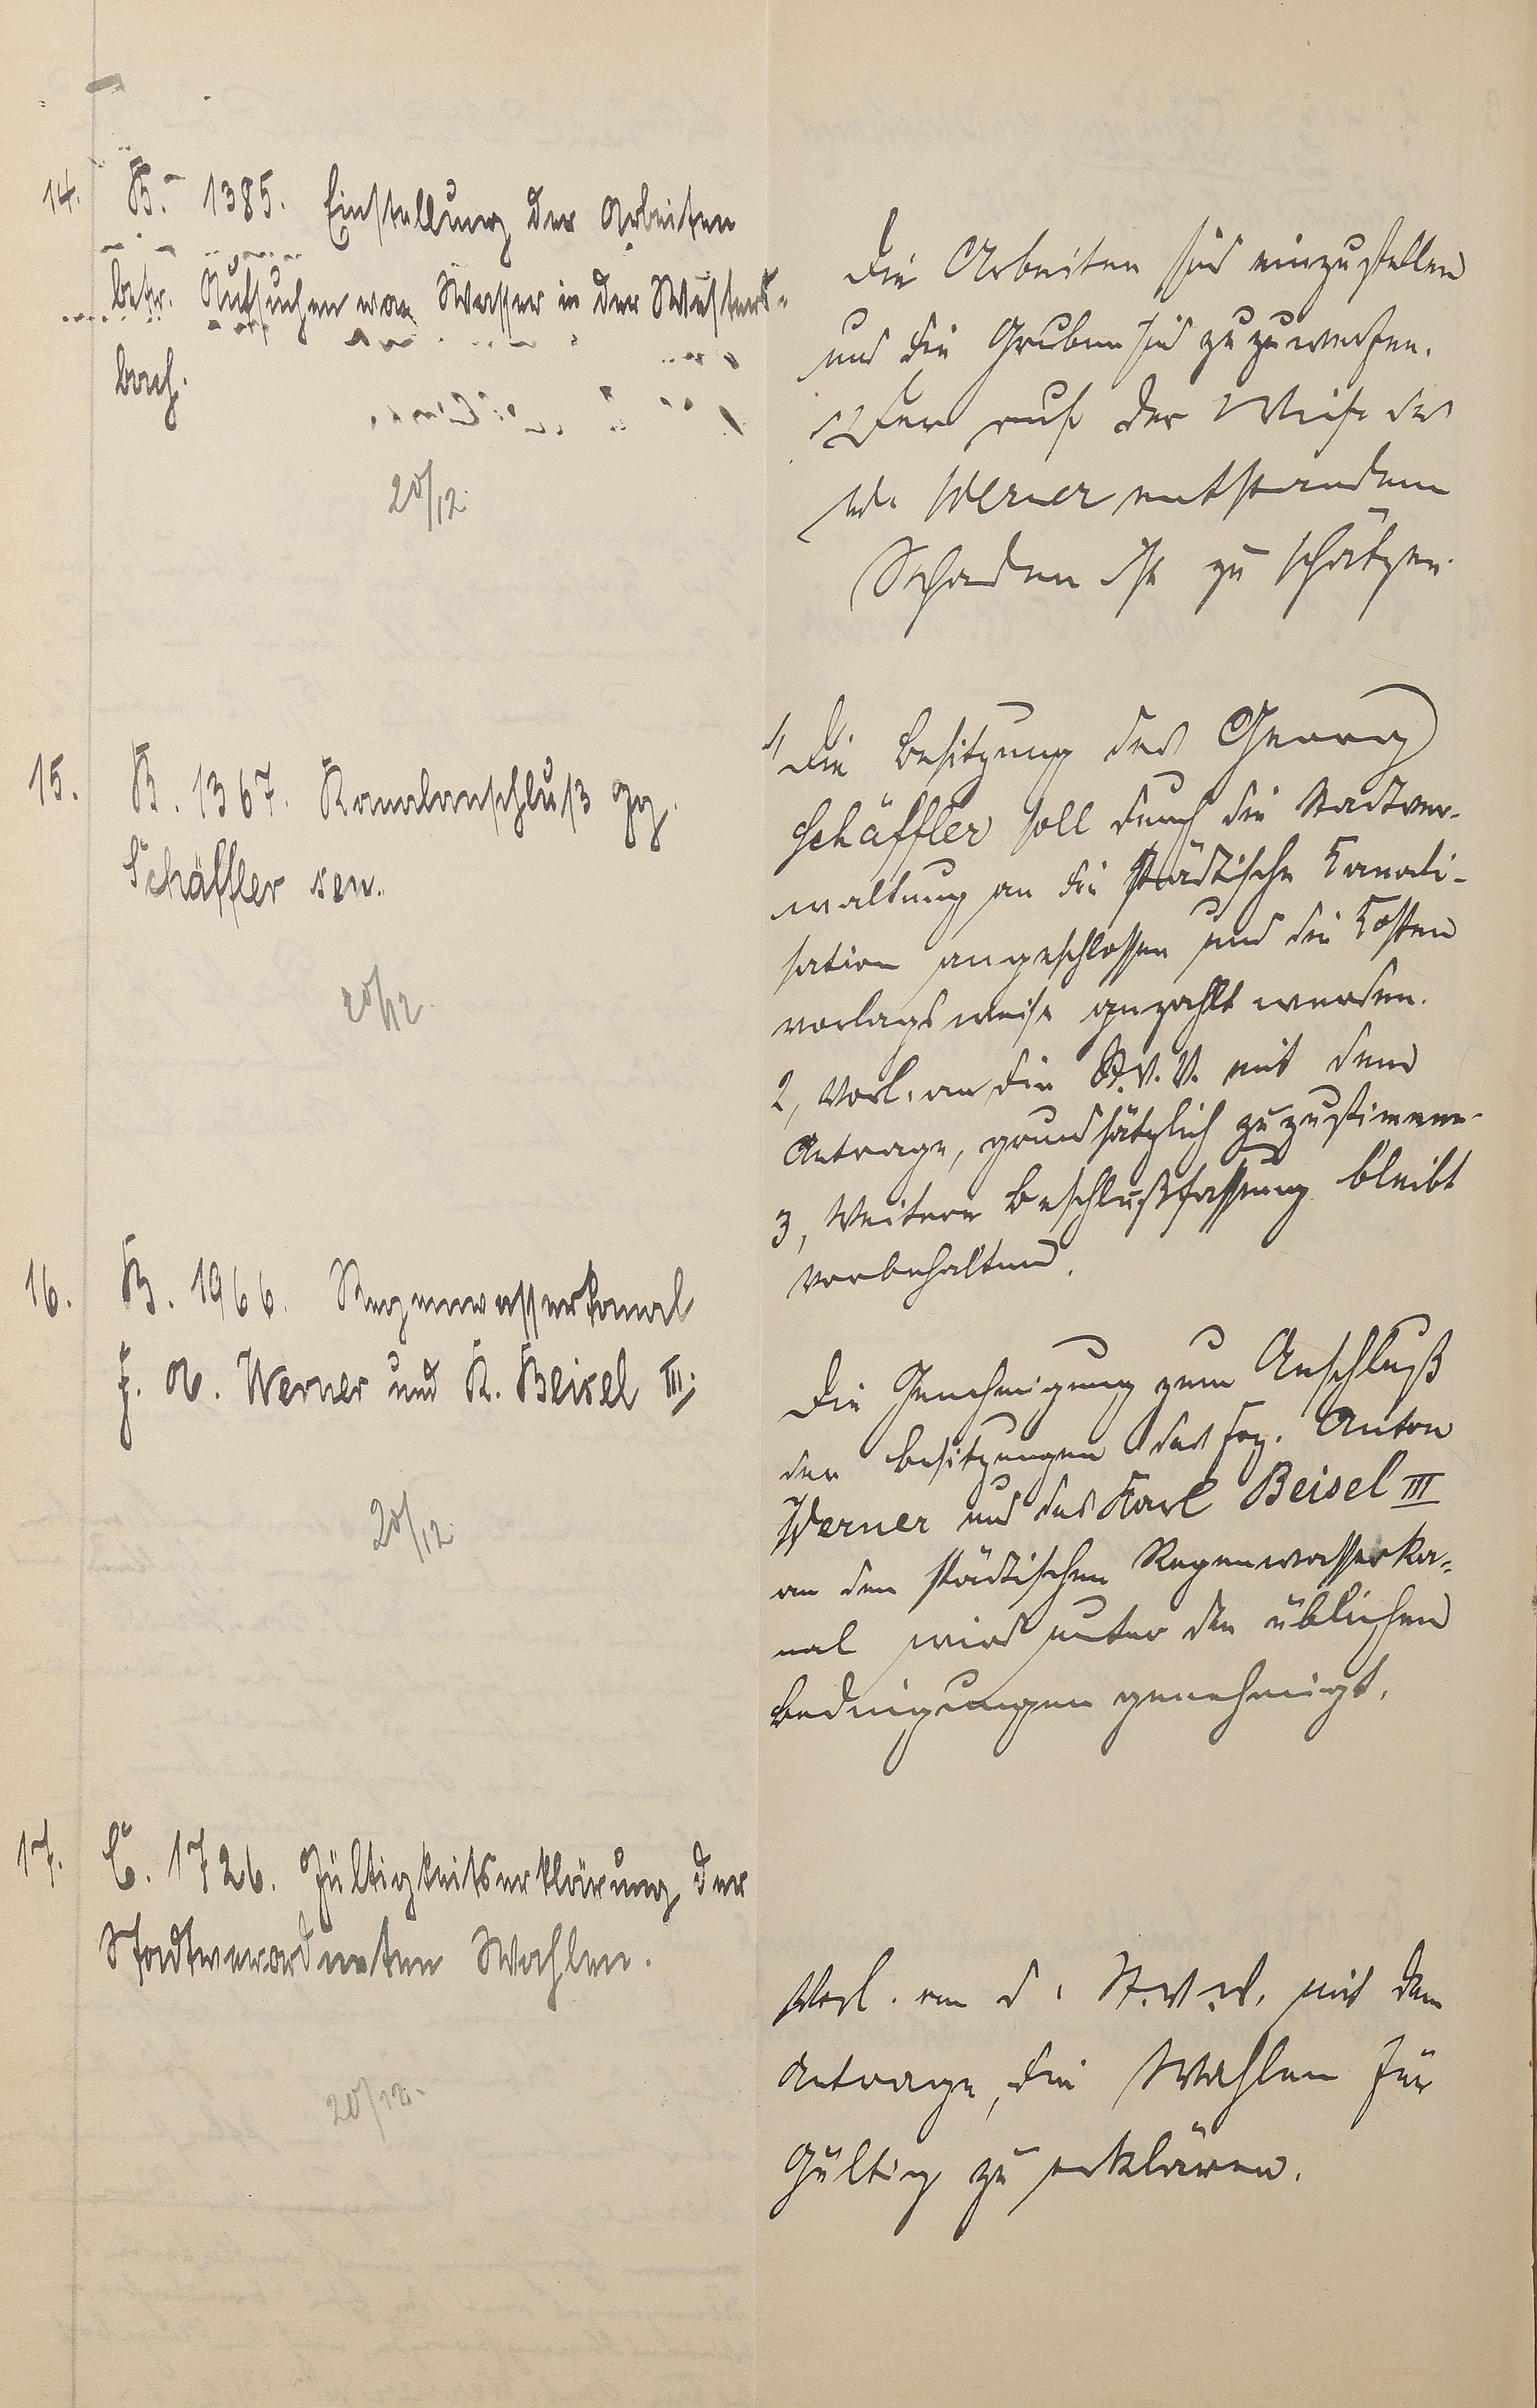 14. B. 1385. Einstellung der Arbeiten
betr. Aufsuchen von Wasser in der Wüsten-
bach.
20/12.
Die Arbeiten sind einzustellen
und die Gruben sind zuzuwerfen.
Der auf der Wiese des
Werner entstandene
Schaden ist zu schätzen.
15. B. 1367. Kanalanschluß Gg.
Schäffler sen.
20/12.
1, Die Besitzung des Georg
Schäffler soll durch die Stadtver-
waltung an die städtische Kanali-
sation angeschlossen und die Kosten
vorlagsweise gezahlt werden.
2, Vorl. an die St.V.V. mit dem
Antrage, grundsätzlich zuzustimmen.
3, Weitere Beschlußfassung bleibt
vorbehalten.
16. B. 1966. Regenwasserkanal
F. A. Werner und K. Beisel III.
20/12.
Die Genehmigung zum Anschluß
der Besitzungen des Frz. Anton
Werner und des Karl Beisel III
an den städtischen Regenwasserka-
nal wird unter den üblichen
Bedingungen genehmigt.
17. C. 1726. Gültigkeitserklärung der
Stadtverordneten Wahlen.
20/12.
Vorl. an d. St.V.V. mit dem
Antrage, die Wahlen für
Gültig zu erklären.